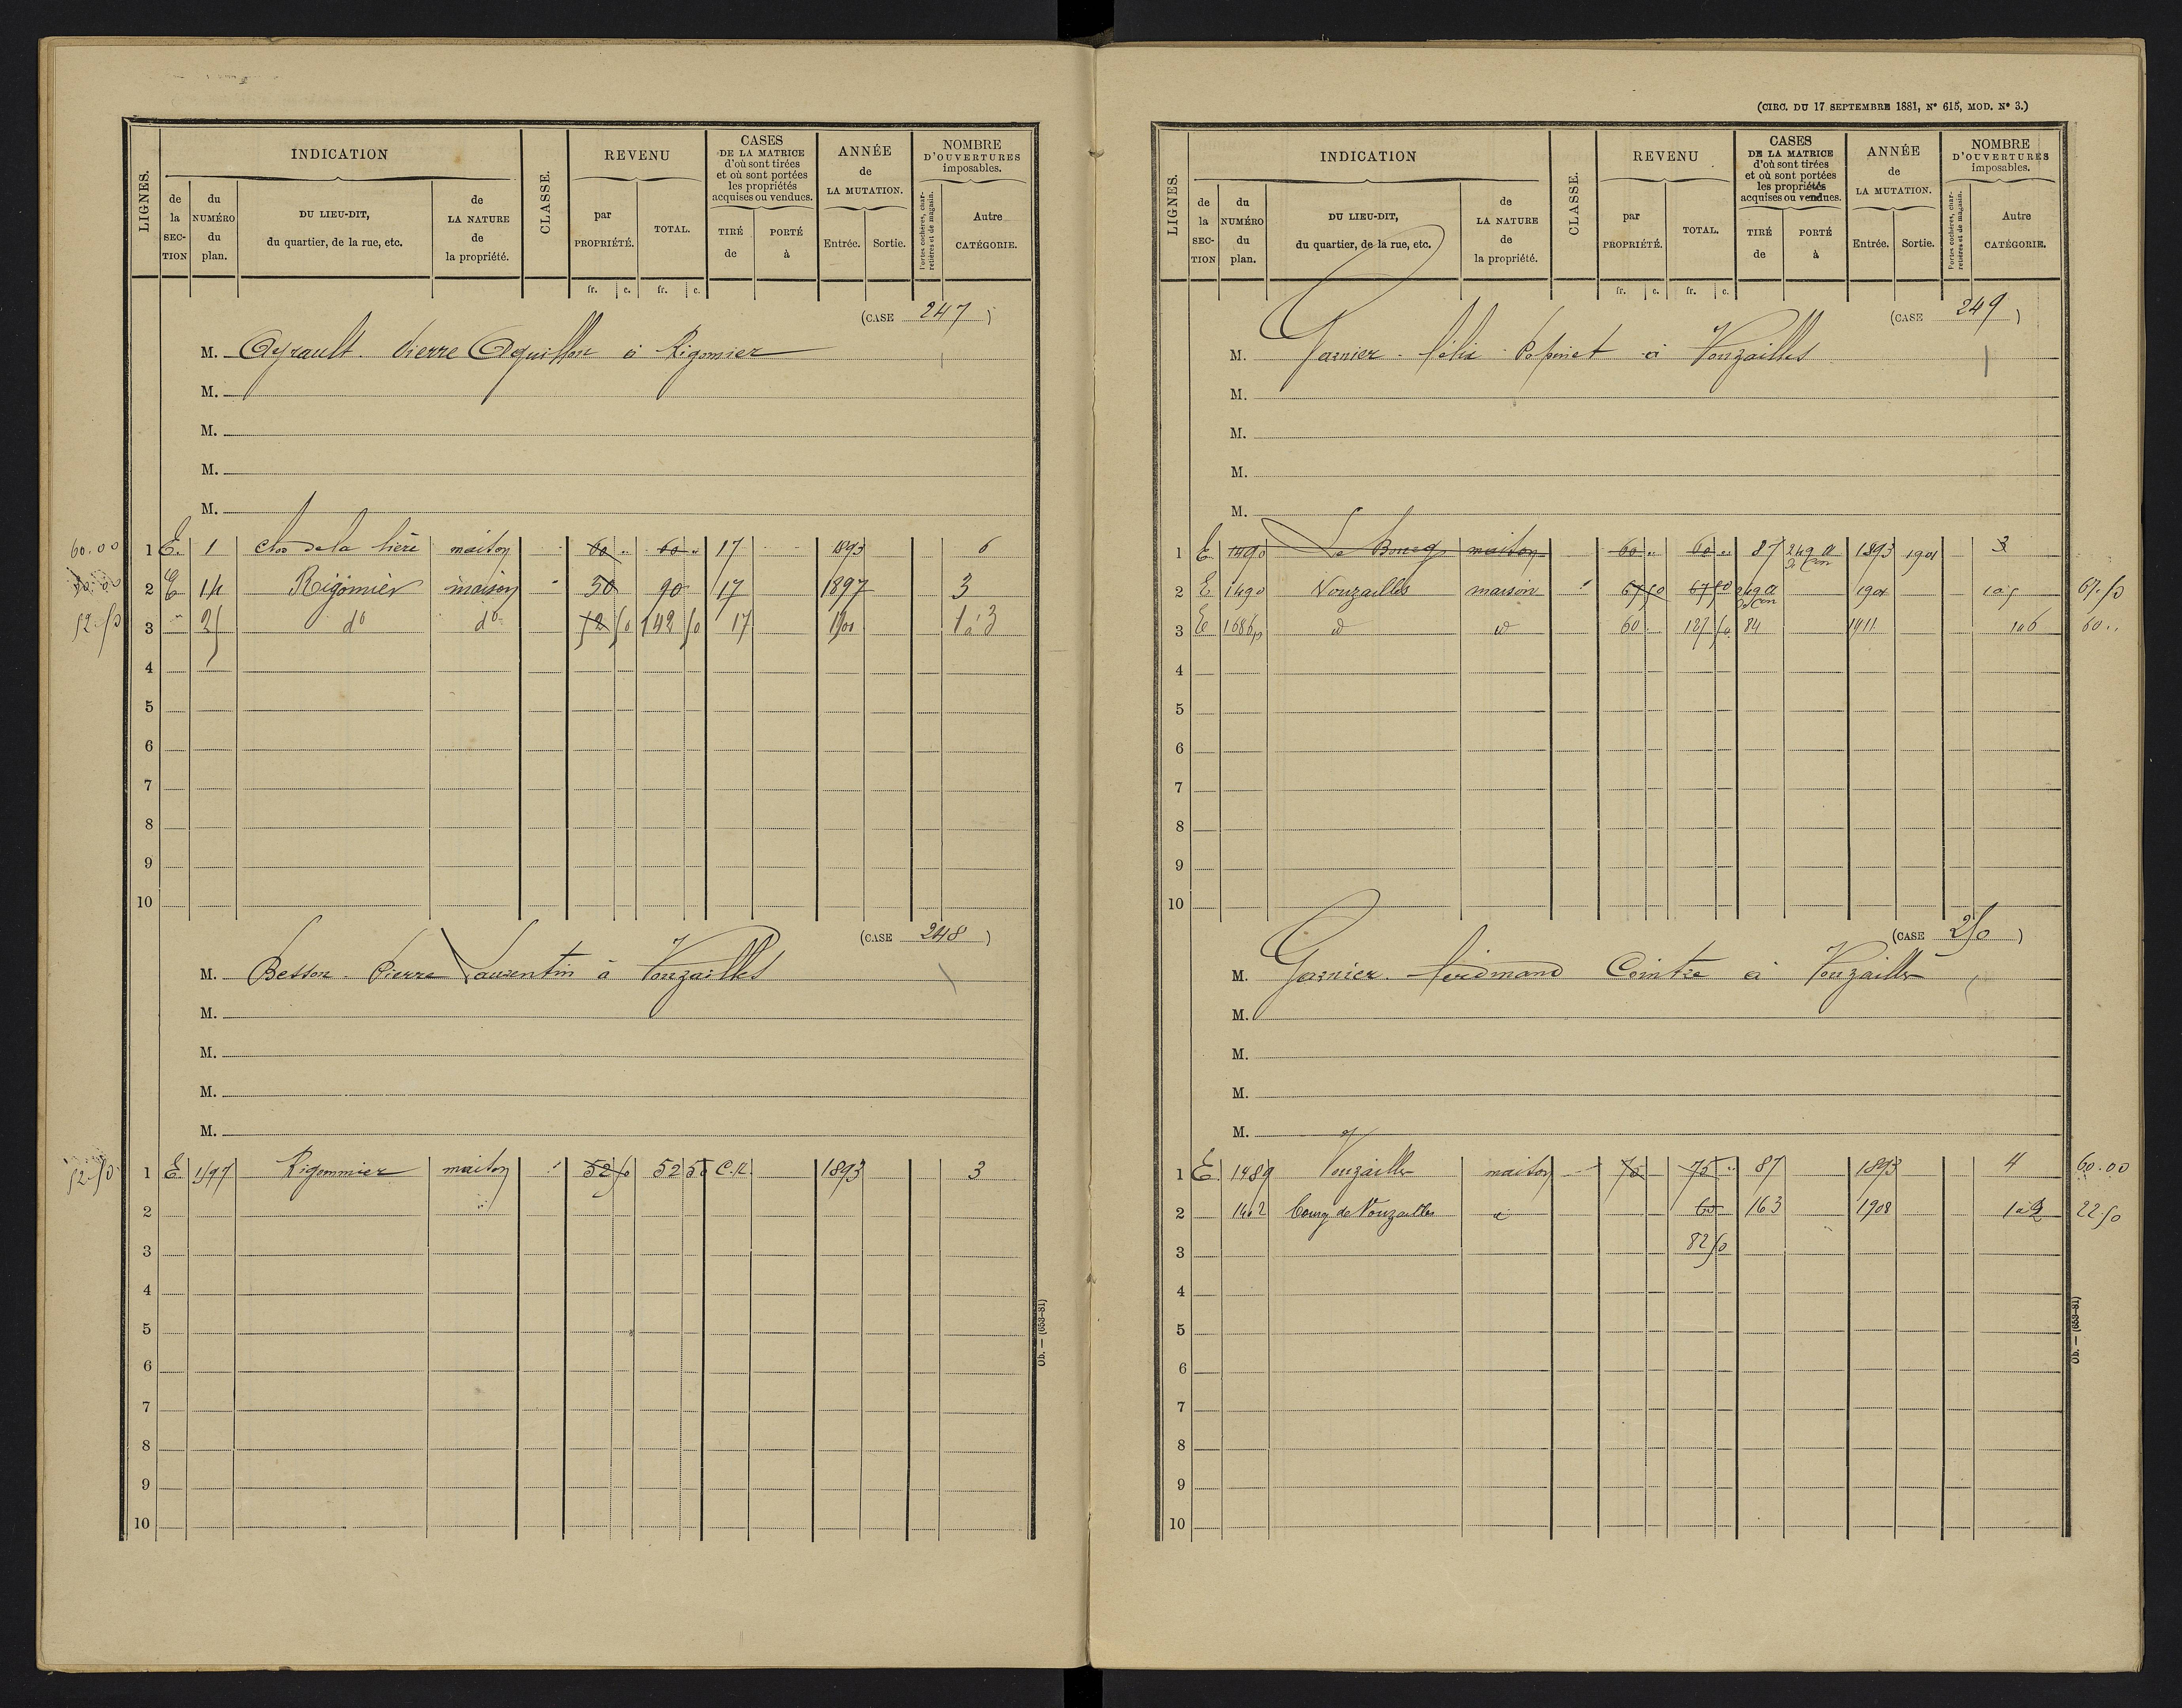 LIGNES.
INDICATION
de la SECTION
du NUMÉRO du plan.
DU LIEU-DIT, du quartier, de la rue, etc.
de LA NATURE de la propriété.
CLASSE.
REVENU
par PROPRIÉTÉ.
TOTAL.
CASES DE LA MATRICE d'où sont tirées et où sont portées les propriétés acquises ou vendues.
TIRÉ de
PORTÉ à
ANNÉE de LA MUTATION.
Entrée.
Sortie.
NOMBRE D'OUVERTURES imposables.
Portes cochères, charretières et de magasin.
Autre CATÉGORIE.
fr. c. fr. c.
(CASE 247)
M. Ayrault Pierre à Rigomier
M.
M.
M.
M.
60.00 1 E. 1 maison 60 " 60 " 17 1893 6
2 E 14 Rigomier maison 30 90 17 1897 3
52.50 3 " 25 do do 52 50 142 50 17 1900 1 à 3
4
5
6
7
8
9
10
(CASE 248)
M. Besson Pierre Laurentin à Vouzailles
M.
M.
M.
M.
52.50 1 E 1597 Rigommier maison 52 50 52 50 C.N. 1893 3
2
3
4
5
6
7
8
9
10
Ob. — (653-81)
(CIRC. DU 17 SEPTEMBRE 1881, N° 615, MOD. N° 3.)
LIGNES.
INDICATION
de la SECTION
du NUMÉRO du plan.
DU LIEU-DIT, du quartier, de la rue, etc.
de LA NATURE de la propriété.
CLASSE.
REVENU
par PROPRIÉTÉ.
TOTAL.
CASES DE LA MATRICE d'où sont tirées et où sont portées les propriétés acquises ou vendues.
TIRÉ de
PORTÉ à
ANNÉE de LA MUTATION.
Entrée.
Sortie.
NOMBRE D'OUVERTURES imposables.
Portes cochères, charretières et de magasin.
Autre CATÉGORIE.
fr. c. fr. c.
(CASE 249)
M. Garnier Félix Papinet à Vouzailles
M.
M.
M.
M.
1 E 1490 Le Bourg maison 60 " 60 " 87 249 1893 1901 3
2 E 1490 Vouzailles maison 67 50 67 50 249 1901 1 à 5 67.50
3 E 1686 d d 60 127 50 84 1911 1 à 6 60 "
4
5
6
7
8
9
10
(CASE 250)
M. Garnier Ferdinand Cointre à Vouzailles
M.
M.
M.
M.
1 E. 1489 Vouzailles maison 75 75 " 87 1893 4 60.00
2 1402 bourg de Vouzailles d 60 163 1908 1 à 2 22.50
3 82 50
4
5
6
7
8
9
10
Ob. — (653-81)